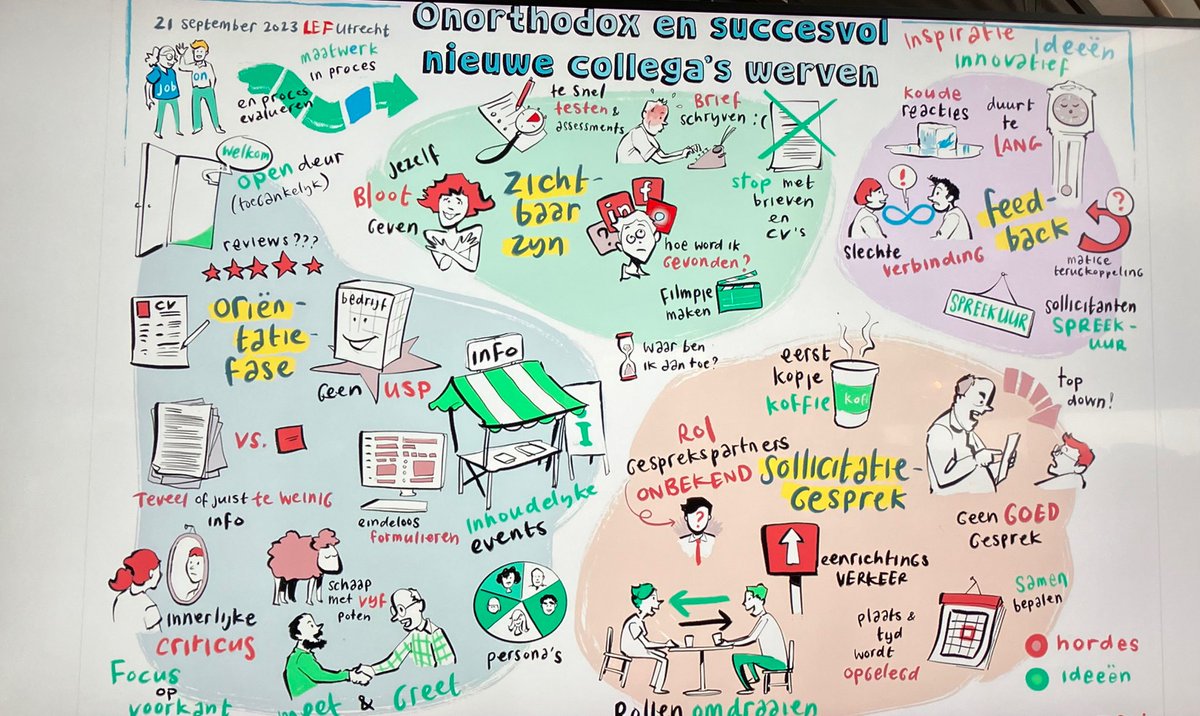 21 september 2023 LEF Utrecht
Onorthodox en succesvol
nieuwe collega's werven
inspiratie
ideeën
innovatief
Job
on
maatwerk
in proces
en proces
evalueren
welkom
open deur
(toegankelijk)
Jezelf
Bloot
Geven
te snel
testen &
assessments
Brief
schrijven :(
stop met
brieven
en
cv's
zicht-
baar
zijn
in
f
?
hoe word ik
gevonden?
filmpje
maken
koude
reacties
duurt
te
LANG
!
feed-
back
slechte
verbinding
?
matige
terugkoppeling
SPREEKUUR
sollicitanten
SPREEK-
UUR
reviews???
CV
oriën-
tatie-
fase
bedrijf
Geen USP
info
i
waar ben
ik aan toe?
vs.
Teveel of juist te weinig
info
eindeloos
formulieren
inhoudelijke
events
innerlijke
criticus
schaap
met vijf
poten
persona's
Focus
op
voorkant
meet & Greet
eerst
kopje
koffie
kof
top
down!
Rol
Gesprekspartners
ONBEKEND
?
sollicitatie-
gesprek
Geen GOED
Gesprek
eenrichtings
VERKEER
plaats &
tijd
wordt
opgelegd
samen
bepalen
Rollen omdraaien
hordes
ideeën